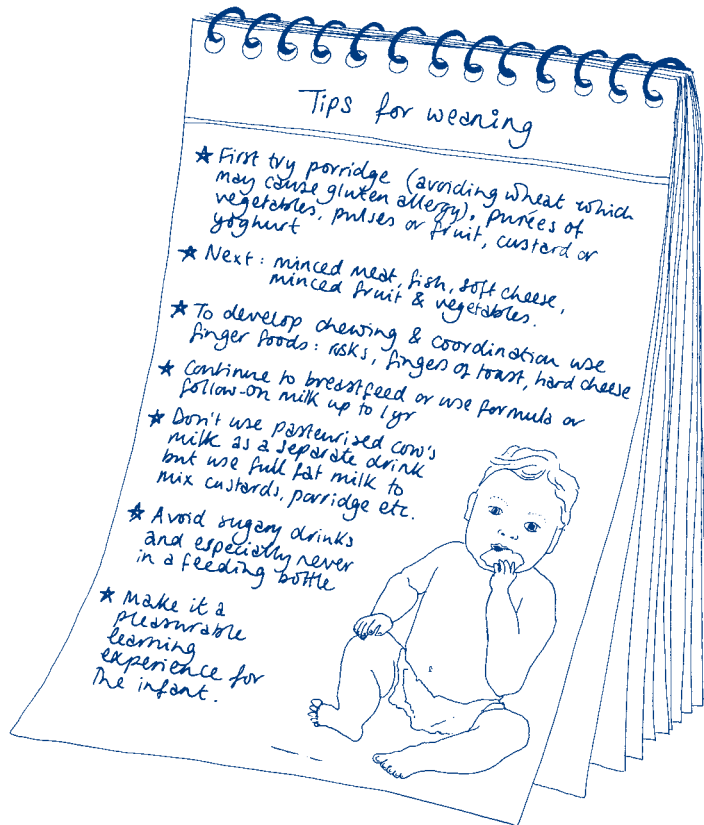 Tips for weaning
★ First try porridge (avoiding wheat which
may cause gluten allergy), purées of
vegetables, pulses or fruit, custard or
yoghurt
★ Next: minced meat, fish, soft cheese,
minced fruit & vegetables.
★ To develop chewing & coordination use
finger foods: rusks, fingers of toast, hard cheese
★ Continue to breastfeed or use formula or
follow-on milk up to 1 yr
★ Don't use pasteurised cow's
milk as a separate drink
but use full fat milk to
mix custards, porridge etc.
★ Avoid sugary drinks
and especially never
in a feeding bottle
★ Make it a
pleasurable
learning
experience for
the infant.